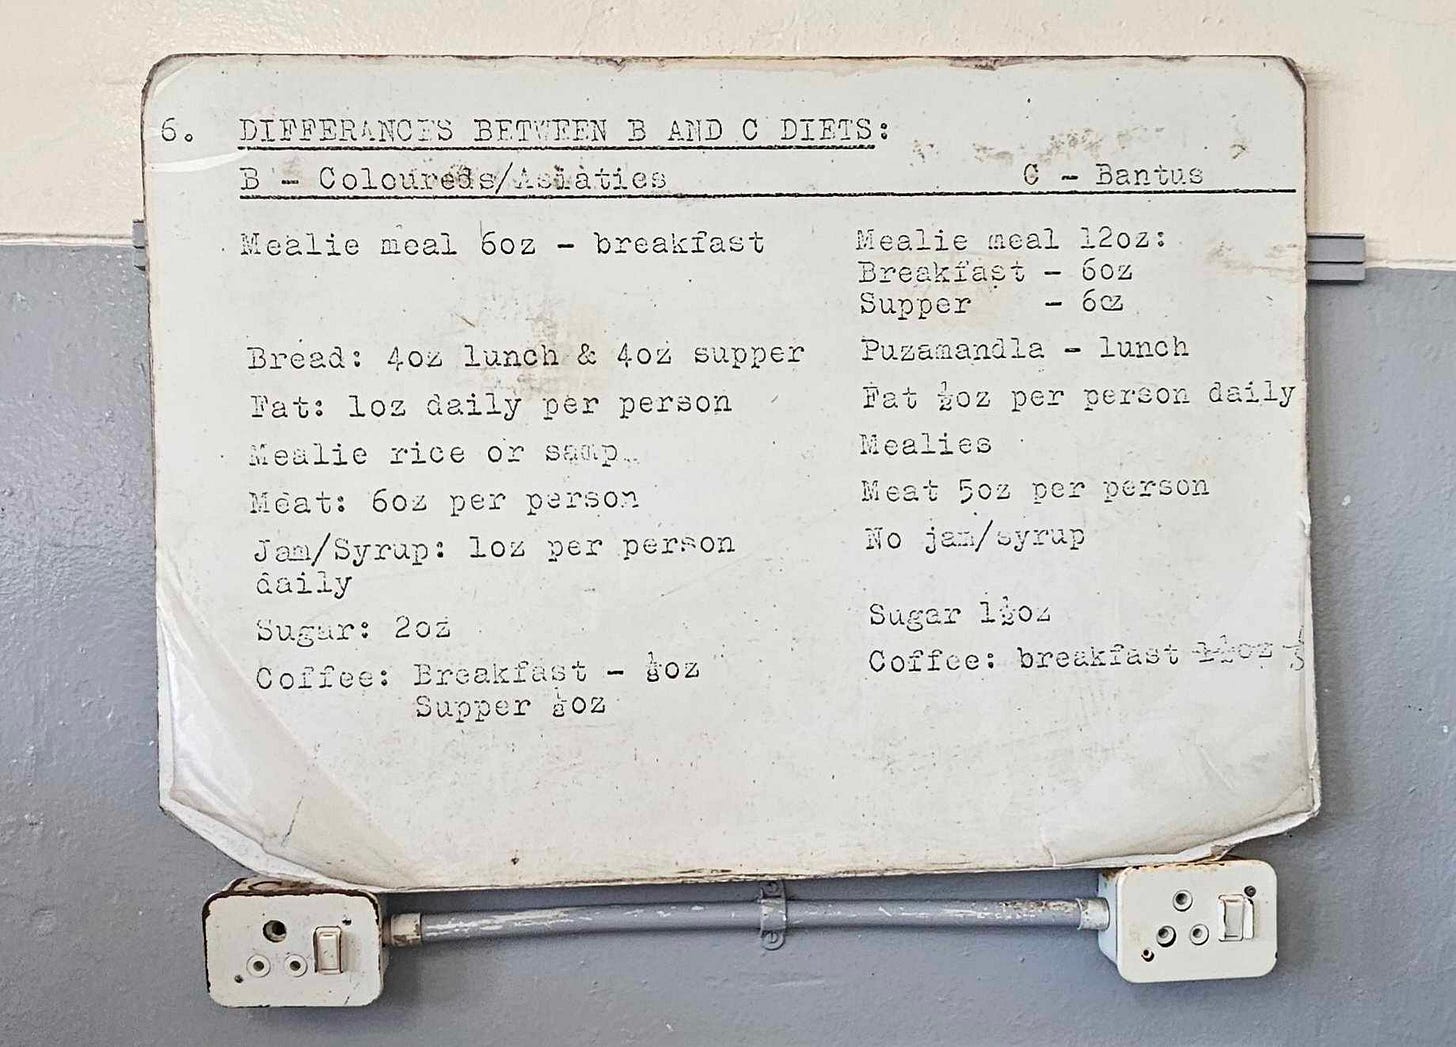 6. DIFFERANCES BETWEEN B AND C DIETS:
B - Coloureds/Asiatics C - Bantus
Mealie meal 6oz - breakfast
Bread: 4oz lunch & 4oz supper
Fat: 1oz daily per person
Mealie rice or samp
Meat: 6oz per person
Jam/Syrup: 1oz per person
daily
Sugar: 2oz
Coffee: Breakfast - ⅛oz
Supper ⅛oz
Mealie meal 12oz:
Breakfast - 6oz
Supper - 6oz
Puzamandla - lunch
Fat ½oz per person daily
Mealies
Meat 5oz per person
No jam/syrup
Sugar 1½oz
Coffee: breakfast